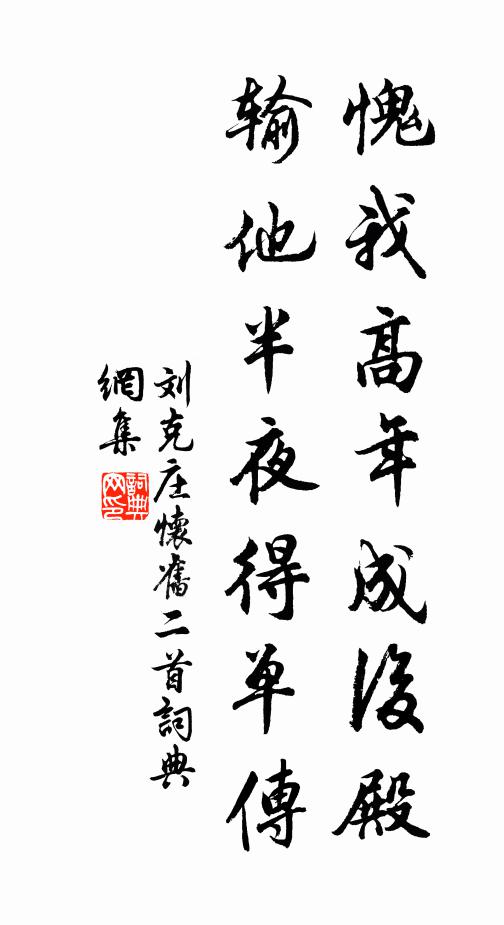 愧我高年成後殿
输他半夜得单傳
刘克庄懷舊二首詞典
網集
詞典
网印